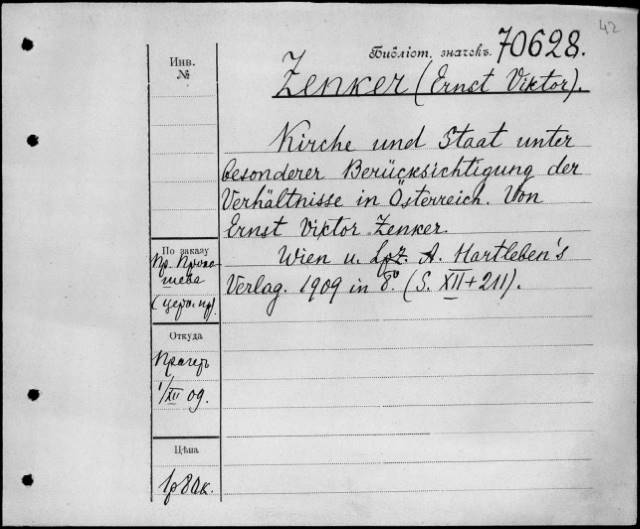 42
Библіот. значекъ 70628.
Инв.
№
Zenker (Ernst Viktor).
Kirche und Staat unter
besonderer Berücksichtigung der
Verhältnisse in Österreich. Von
Ernst Viktor Zenker.
Wien u. Lpz. A. Hartleben's
Verlag. 1909 in 8º. (S. XII+211).
По заказу
Пр.
Откуда
1/XII 09.
Цѣна
1р80к.